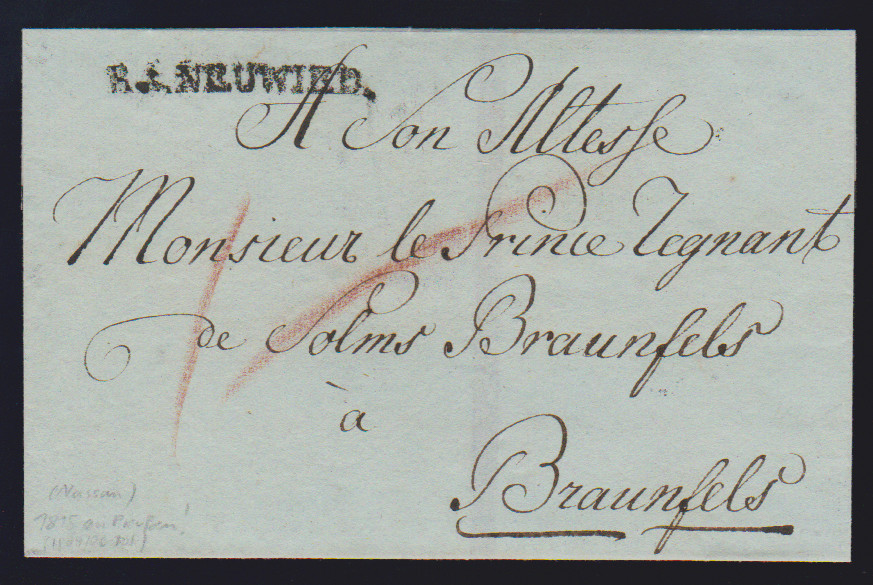 R.4.NEUWIED.
A Son Altesse
Monsieur le Prince Regnant
de Solms Braunfels
à
Braunfels
(Nassau)
1815